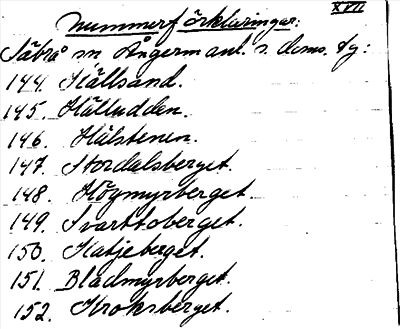 XVII
Nummerförklaringar:
Säbrå sn Ångermanl. s. doms. tg:
144. Hällsand.
145. Hälludden.
146. Hälstenen.
147. Stordalsberget.
148. Högmyrberget.
149. Svarttoberget.
150. Hatjeberget.
151. Bladmyrberget.
152. Kroksberget.